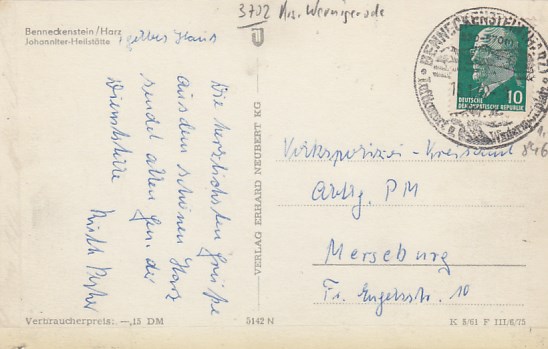 Benneckenstein/Harz
Johanniter-Heilstätte
gelbes Haus
3702 Krs. Wernigerode
Die herzlichsten Grüße
aus dem schönen Harz
sendet allen Gen. der
Dienststelle
VERLAG ERHARD NEUBERT KG
BENNECKENSTEIN (HARZ)
Luftkurort u. Wintersportplatz
DEUTSCHE
DEMOKRATISCHE REPUBLIK
10
Volkspolizei-Kreisamt
Abtlg. PM
Merseburg
Fr. Engelsstr. 10
Verbraucherpreis: —,15 DM
5142 N
K 5/61 F III/6/75